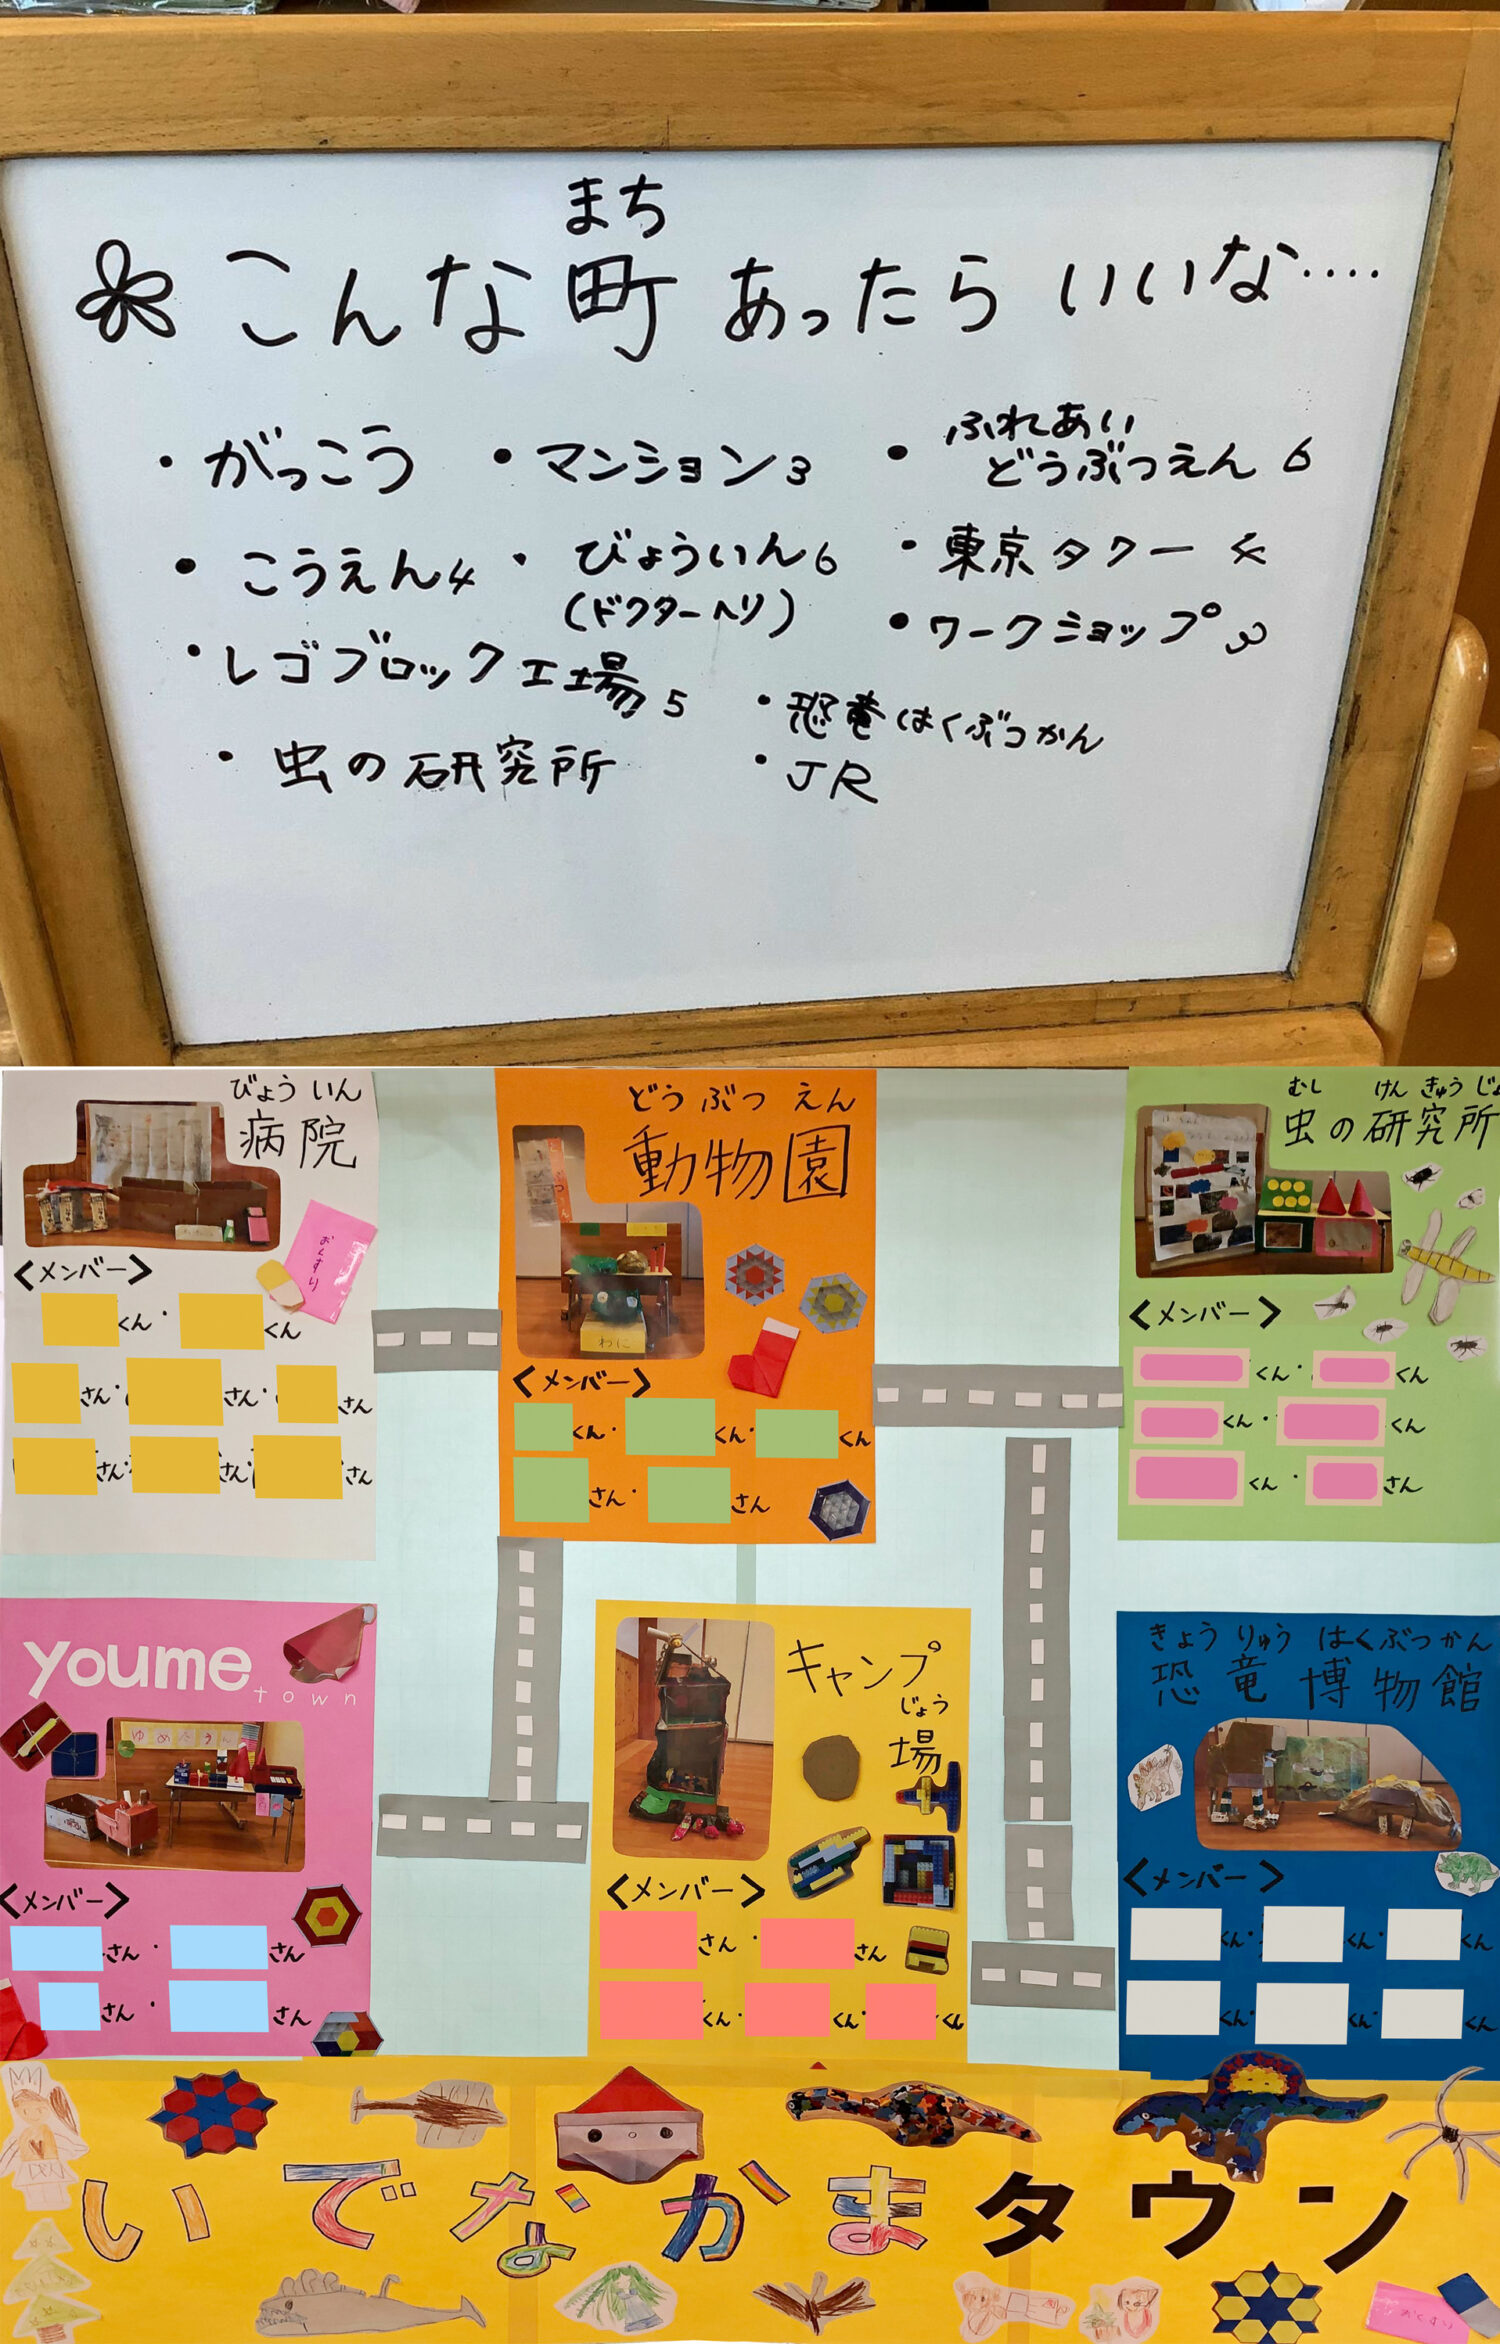 まち
こんな町あったらいいな‥‥
・がっこう
・マンション3
・ふれあい
どうぶつえん 6
・こうえん4
・びょういん6
(ドクターヘリ)
・東京タワー 4
・ワークショップ 3
・レゴブロック工場 5
・恐竜はくぶつかん
・虫の研究所
・JR
びょう いん
病院
おくすり
<メンバー>
くん・くん
さん・さん・さん
さん・さん・さん
どう ぶつ えん
動物園
わに
<メンバー>
くん・くん・くん
さん・さん
むし けん きゅう じょ
虫の研究所
<メンバー>
くん・くん
くん・くん
くん・さん
youme
town
ゆめたうん
<メンバー>
さん・さん
さん・さん
キャンプ
じょう
場
<メンバー>
さん・さん
くん・くん・くん
きょう りゅう はくぶつかん
恐竜博物館
<メンバー>
くん・くん・くん
くん・くん・くん
いでなかまタウン